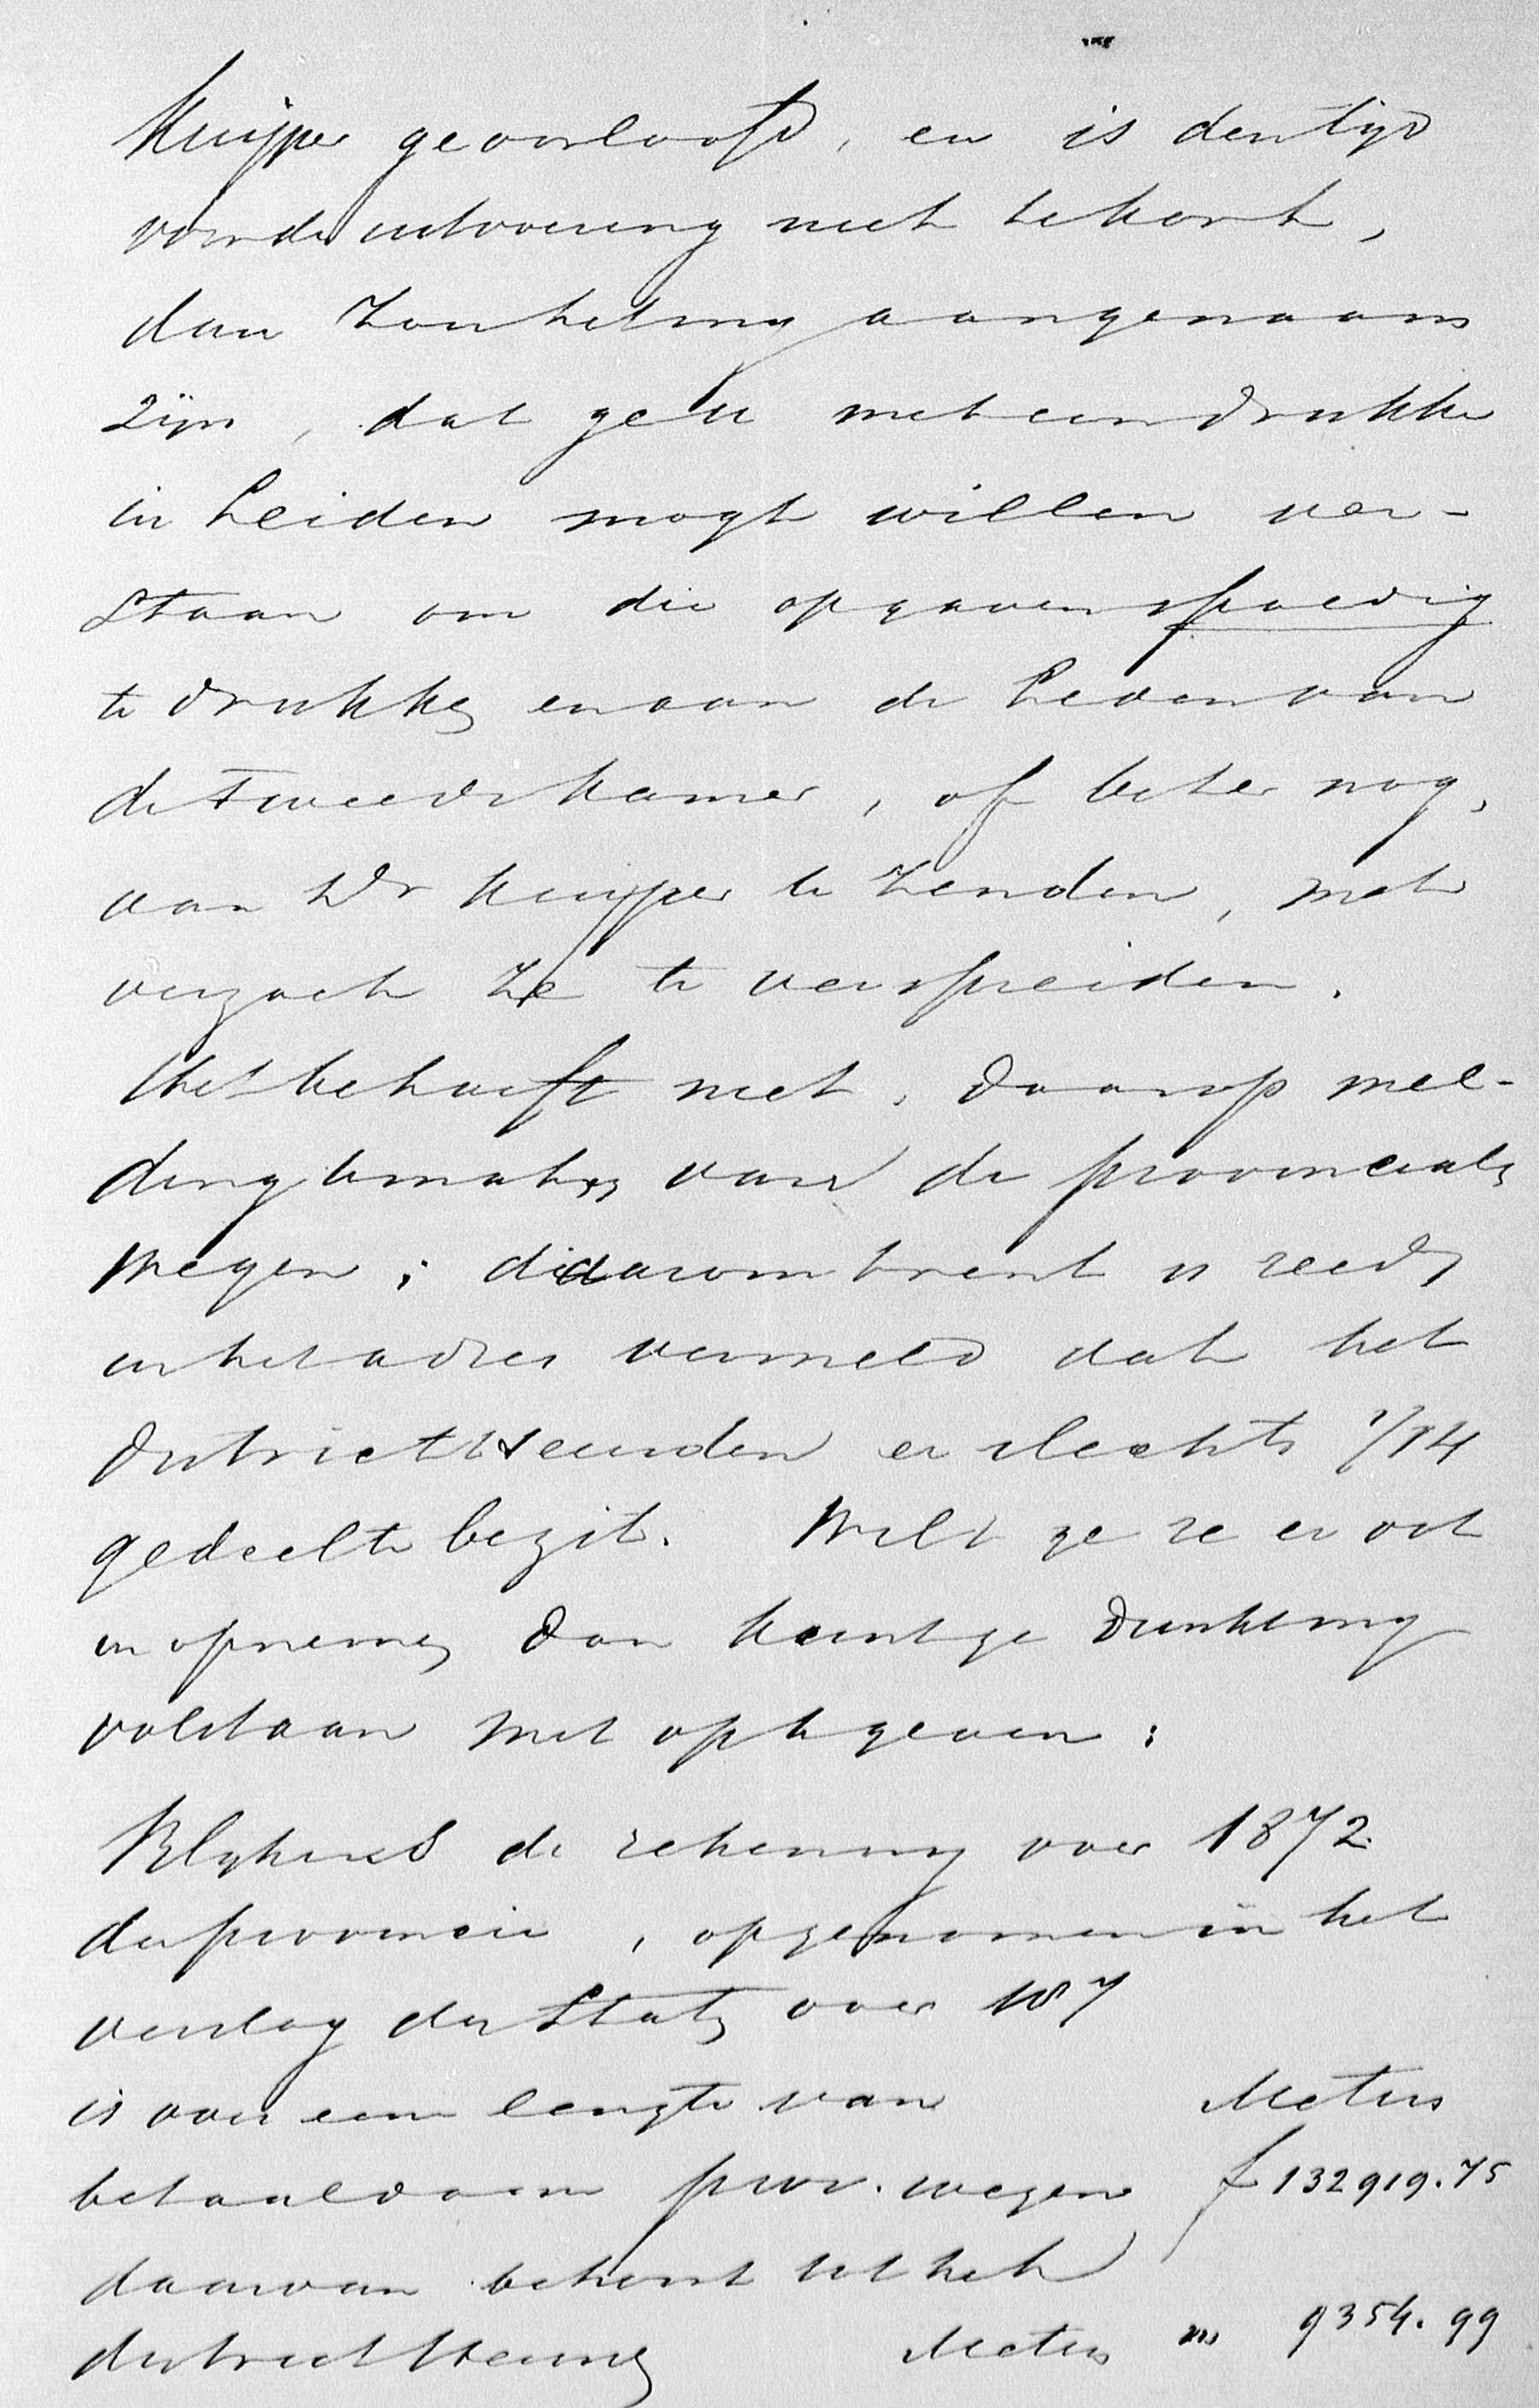 Kuijper geoorloofd, en is den tijd
voor de uitvoering niet te kort,
dan zou het my aangenaam
zijn, dat ge u met een drukker
in Leiden mogt willen ver-
staan om die opgaven spoedig
te drukken en aan de Leden van
de Tweede Kamer, of beter nog,
aan Dr Kuijper te zenden, met
verzoek ze te verspreiden.
Het behoeft niet, daarop mel-
ding te maken van de provinciale
wegen; daaromtrent is reeds
in het adres vermeld dat het
district Heusden er slechts 1/14
gedeelte bezit. Wilt ge ze er ook
in opnemen dan kunt ge dunkt my
volstaan met op te geven:
Blykens de rekening over 1872
der provincie, opgenomen in het
verslag der Staten over 187
is over een lengte van Meters
betaald aan prov. wegen f 132919.75
daarvan behoort tot het
district Heusden Meters " 9354.99